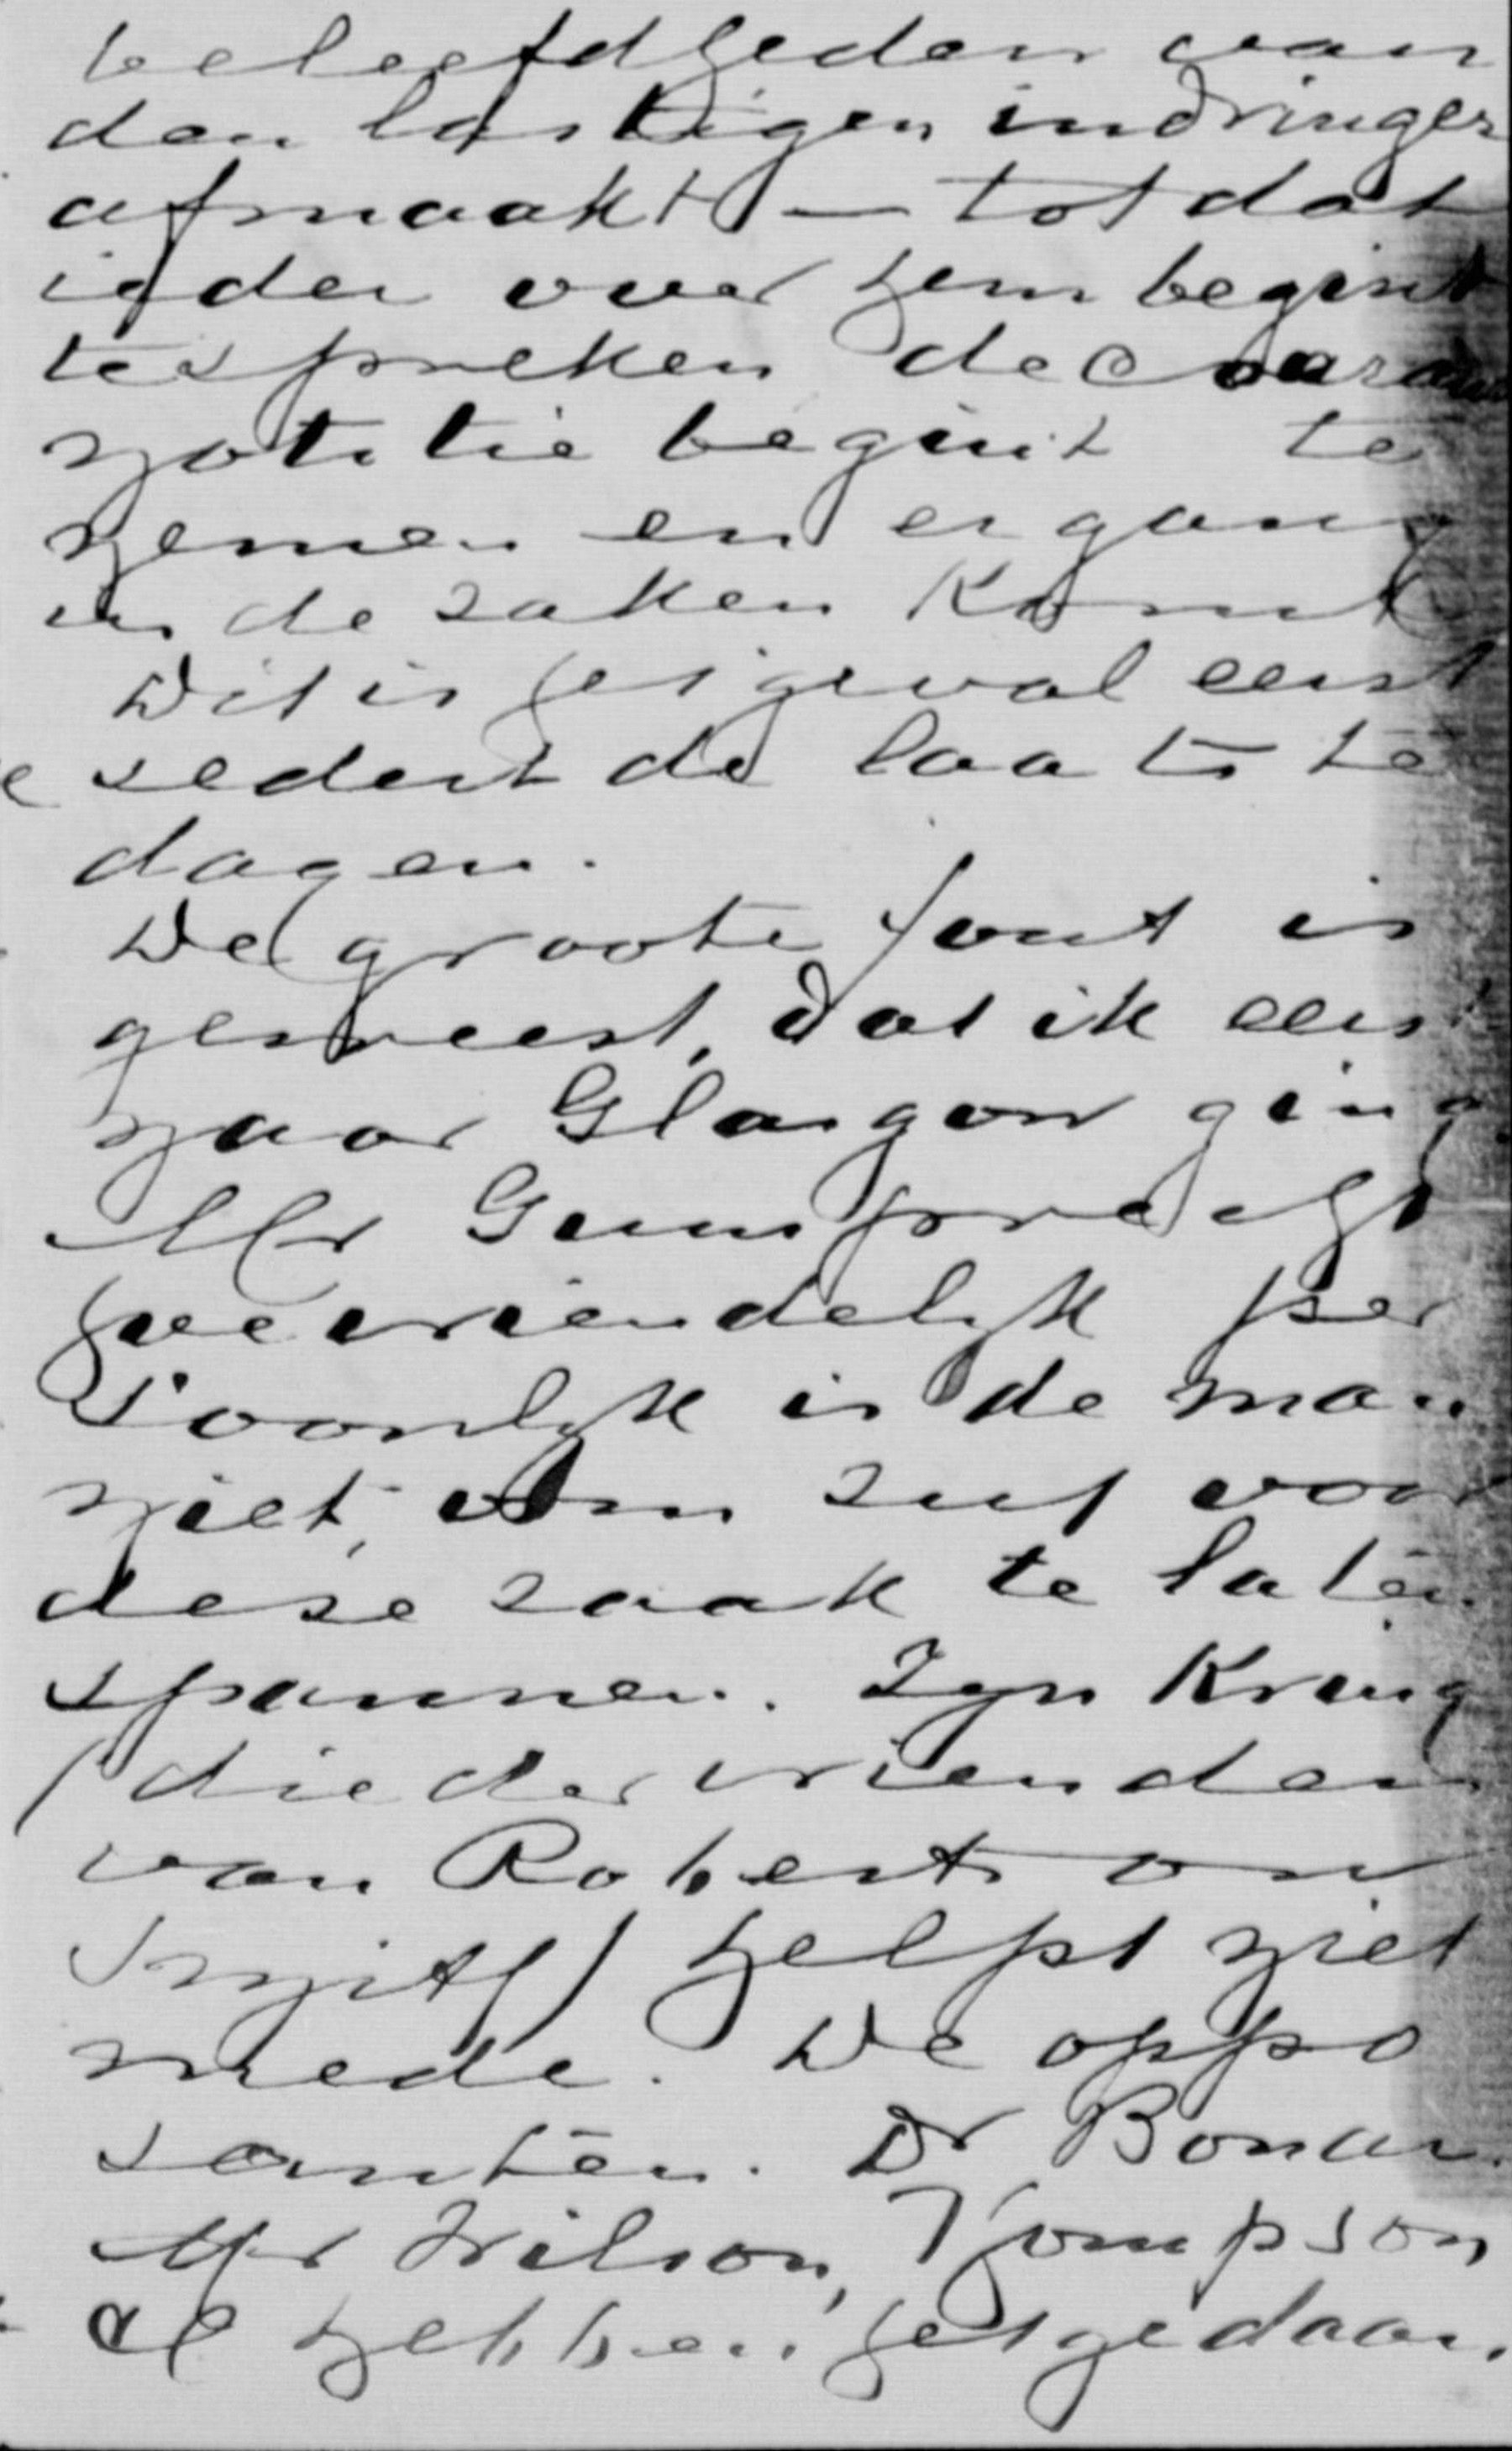 beleefdheden van
den lastigen indringer
afmaakt — totdat
ieder over hem begint
te spreken de
notitie begint te
nemen en er gang
in de zaken komt
Dit is het geval eerst
sedert de laatste
dagen.
De groote fout is
geweest, dat ik eerst
naar Glasgow ging
Mr Gumprecht
hoe vriendelijk per
soonlijk is de man
niet, om zich voor
deze zaak te laten
spannen. Zijn kring
(die der vrienden
van Robertson
Smith) helpt niet
mede. De oppo
santen. Dr Bonar.
Mr Wilson, Thompson
al hebben het gedaan.